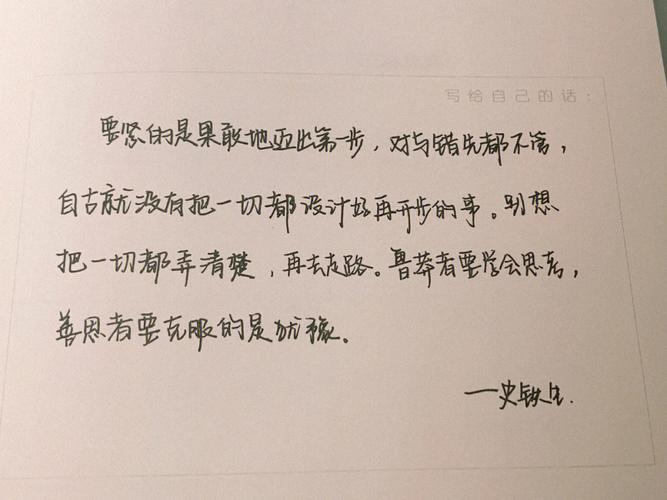 写给自己的话：
要紧的是果敢地迈出第一步，对与错先都不管，
自古就没有把一切都设计好再开步的事。别想
把一切都弄清楚，再去走路。鲁莽者要学会思考，
善思者要克服的是犹豫。
——史铁生.